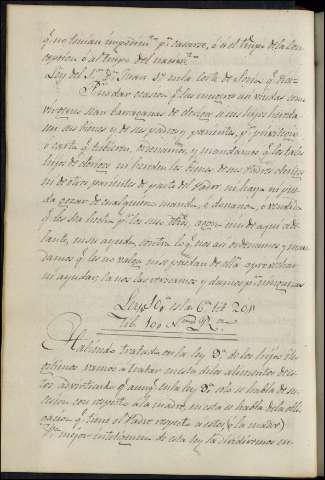 q.e no tenian impedim.to p.a casarse, ó á el tiempo de la Con-
cepcion ó al tiempo del nacim.to
Ley del S.r D.n Juan 1.o en la Corte de Soria q.e dice
no dar ocasion q.e las mugeres asi viudas como
virgenes sean barraganas de clerigos si sus hijos hereda-
sen sus bienes ni de sus padres, y parientes, p.r privilegio
o carta q.e tubieren, ordenamos, y mandamos q.e los tales
hijos de clerigos ni hereden los bienes de sus Padres clerigos
ni de otros parientes de parte del Padre, ni hayan ni pue-
dan gozar de cualquiera manda, o donacion, o vendida
q.e les sea hecha p.r los sus Padres, agora ni de aqui ade-
lante,
damos q.e les no valan ni se puedan de ellas aprovechar
ni ayudar; ca nos las revocamos y damos p.r ningunas
Ley 10.a es la 6.a tit. 20
Lib. 10.o Nov.ma R.n
Habiendo tratado en la ley 9.a de los hijos ile-
gitimos vamos a tratar en esta de los alimentos de es-
tos advirtiendo q.e aunq.e en la ley 9.a solo se habla de su-
cesion con respecto a la madre, en esta se habla de la obli-
gacion q.e tiene el Padre respecto a estos (y la madre)
P.a mejor inteligencia de esta ley la dividiremos en